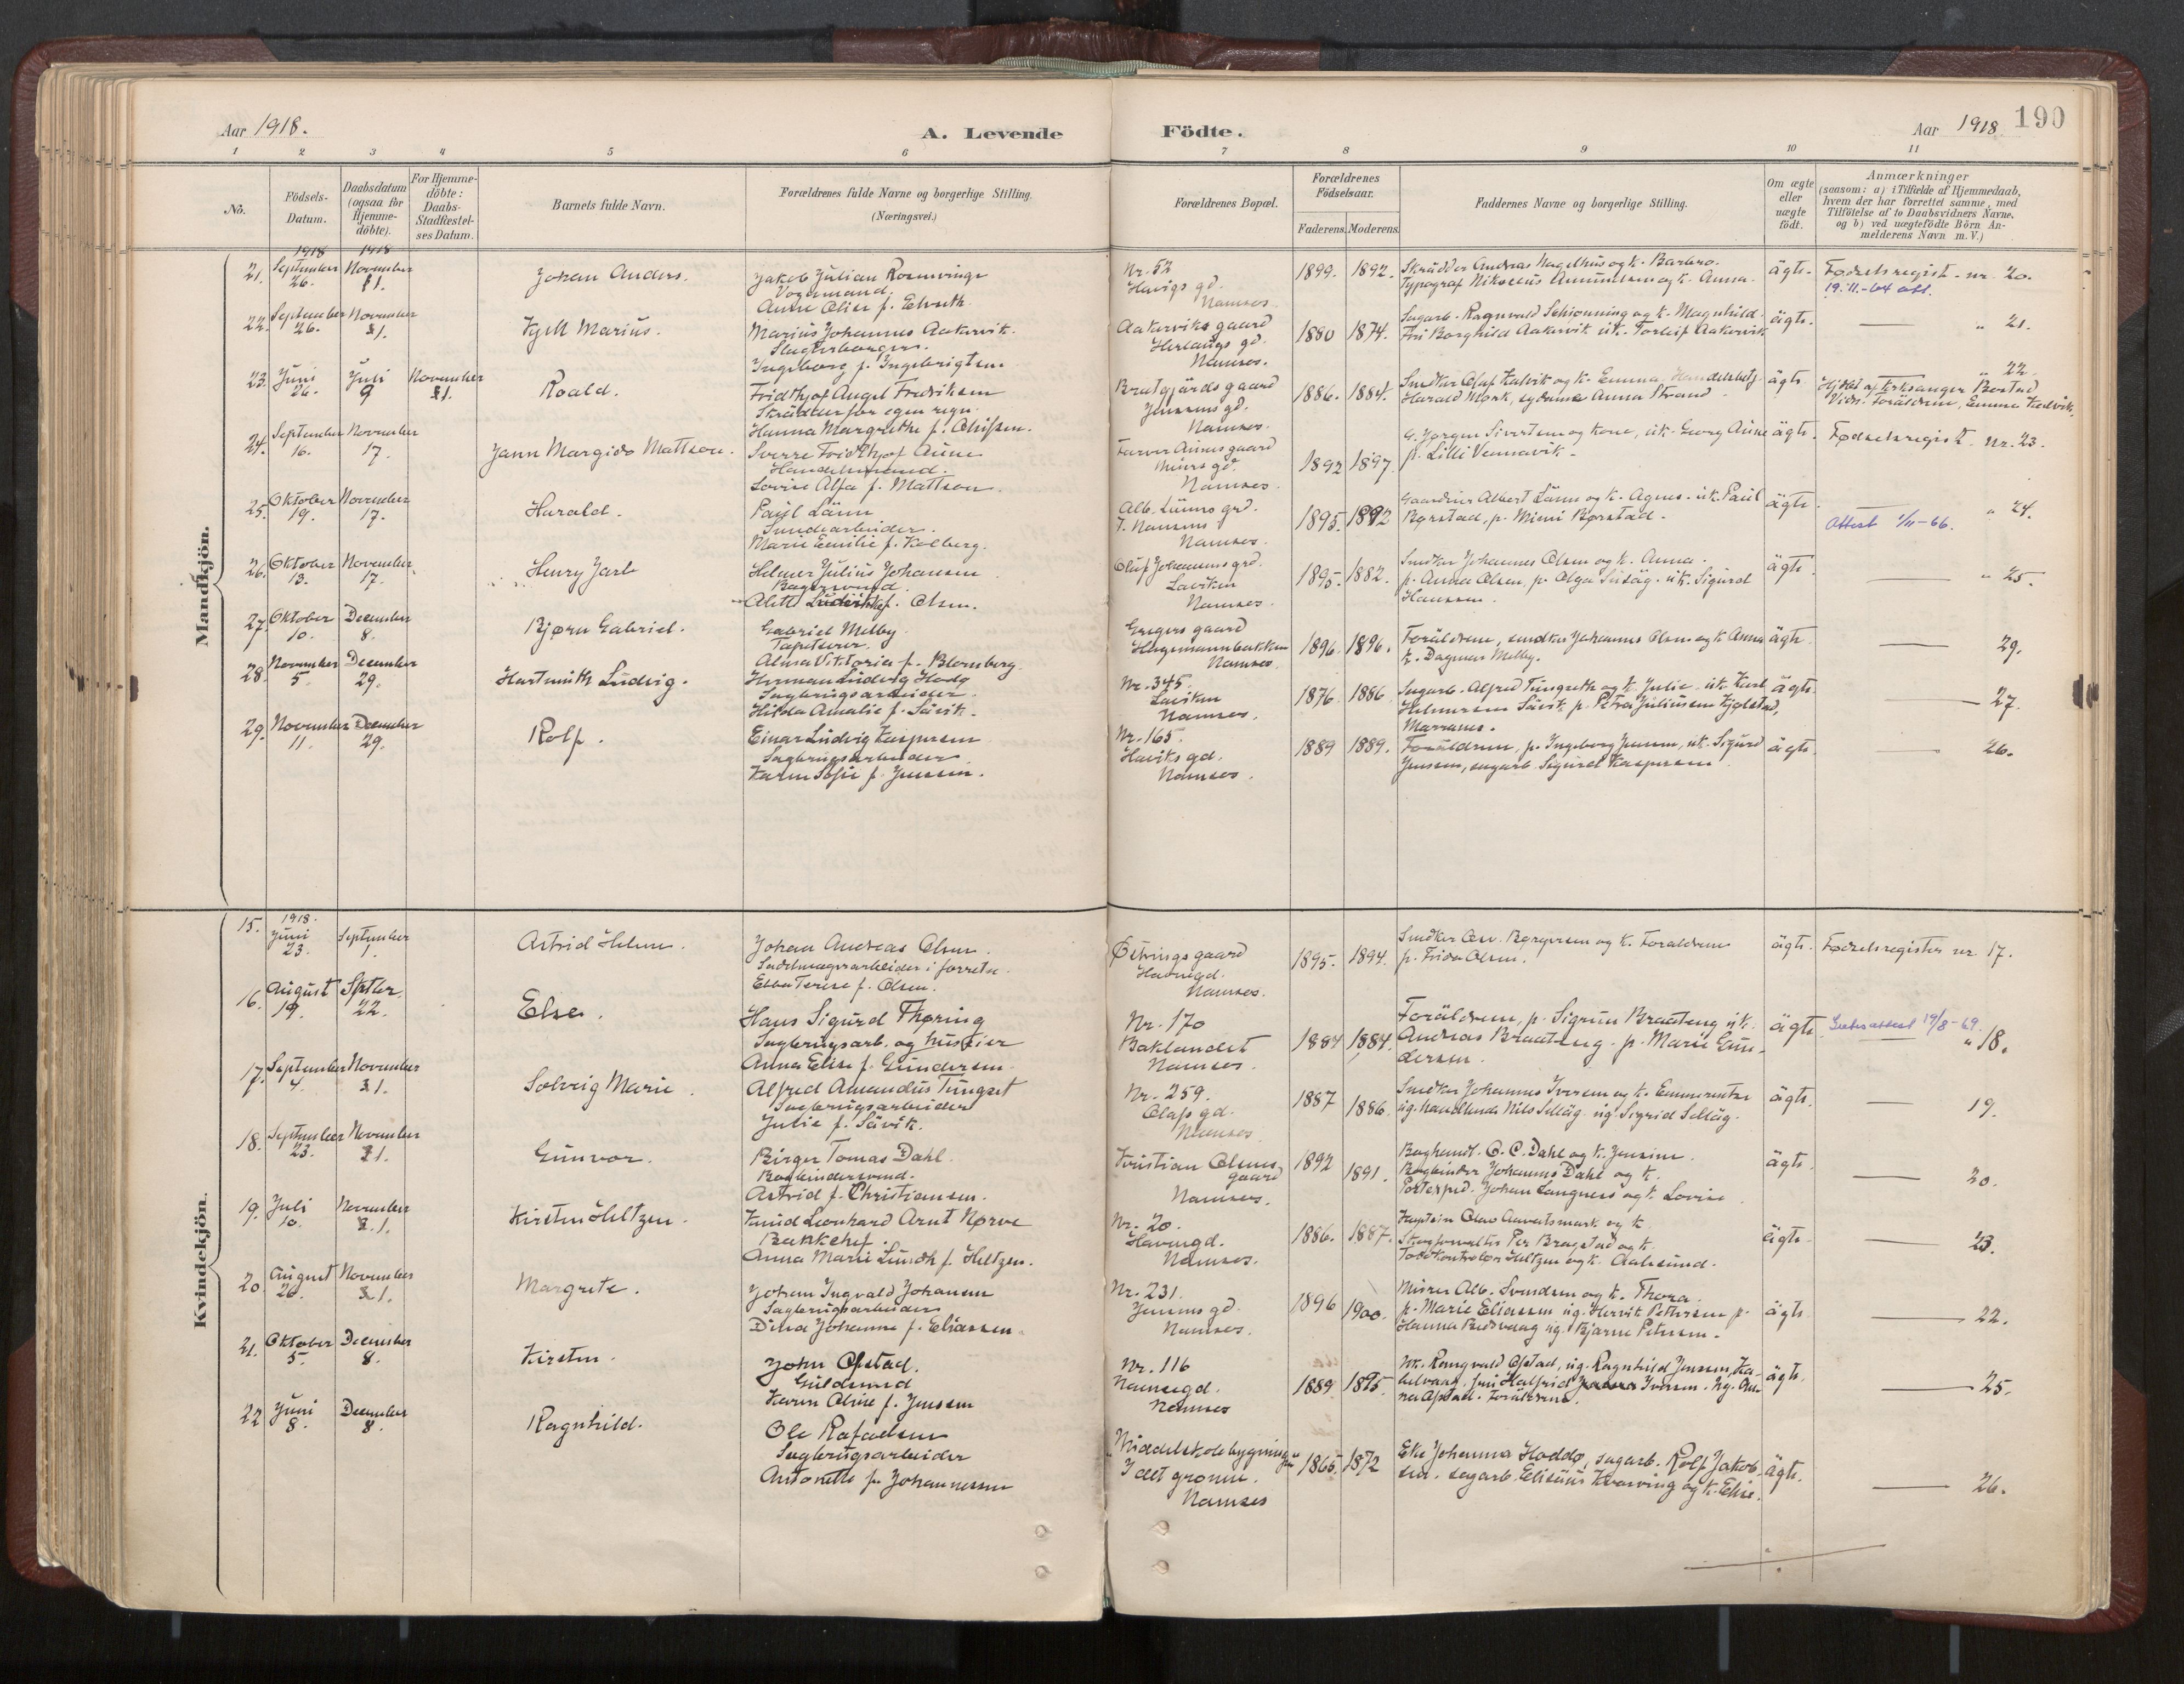 Aar 1918.
A. Levende
Födte.
Aar 1918
190
1 2 3 4 5 6 7 8 9 10 11
No.
Födsels-
Datum.
Daabsdatum
(ogsaa for
Hjemme-
döbte).
For Hjemme-
döbte:
Daabs-
Stadfæstel-
ses Datum.
Barnets fulde Navn.
Forældrenes fulde Navne og borgerlige Stilling.
(Næringsvei.)
Forældrenes Bopæl.
Forældrenes
Födselsaar.
Faderens. Moderens.
Faddernes Navne og borgerlige Stilling.
Om ægte
eller
uægte
födt.
Anmærkninger
(saasom: a) i Tilfælde af Hjemmedaab,
hvem der har forrettet samme, med
Tilföielse af to Daabsvidners Navne,
og b) ved uægtefödte Börn An-
melderens Navn m. V.)
Mandkjön.
1918 1918
21. September 26. November 1. Johan Anders.
Jakob Julian Rosenvinge
Vognmand.
Anne Elise f. Elvseth
Nr. 52
Havigs gd.
Namsos
1899. 1892.
Skrædder Andreas Nagelhus og k. Barbro.
Typograf Nikolaus Amundsen og k. Anna.
ägte. Fødselsregist. nr. 20.
19.11.-64 att.
22. September 26. November 1. Kjell Marius.
Marius Johannes Aakervik.
Ingeborg f. Ingebrigtsen
Aakerviks gaard
Herlaugs gd.
Namsos.
1880 1874.
Sagarb. Ragnvald Schionning og k. Magnhild.
Frk Borghild Aakervik uk. Torleif Aakervik
ägte. " 21.
23. Juni 26. Juli 9 November 1. Roald.
Fridthjof Angel Fredriksen
Skrädder for egen regn.
Hanna Margrethe f. Olissen.
Bratgjärds gaard
Jensens gd.
Namsos.
1886. 1884.
Smedker Olaf Kalvik og k. Emma. Handelsbetj.
Harald Mørk, sydame Anna Strand
ägte " 22.
Hjdbt af Kirksanger Bostad
Vidn. Forældrene, Emma Kalvik.
24. September 16. November 17. Jann Margido Mattson.
Sverre Fridthjof Aune
Handelsmand.
Lovise Alfa f. Mattson.
Farver Aunes gaard
Namsos.
1892 1897.
G. Jørgen Sivertsen og kone, uk. Georg Aune
p. Lilli Vennavik.
ägte. Fødselsregist. Nr. 23.
25. Oktober 19. November 17. Harald.
Paul Länn
Marie Emilie f. Kolberg.
Namsos.
1895. 1892
Gaardeier Albert Länn og k. Agnes. uk. Paul
Børstad, p. Mimi Børstad.
ägte " 24.
Attest 1/11-66.
26. Oktober 13. November 17. Henry Jarl
Helmer Julius Johansen
Bagersvend.
Oluf Johansens grd.
Laviken
Namsos.
1895. 1882.
Smedker Johannes Olsen og k. Anna.
p. Anna Olsen, p. Olga Susäg. uk. Sigurd
Hanssen.
ägte " 25.
27. Oktober 10. December 8. Bjørn Gabriel.
Gabriel Melby.
Tapetserer.
Alma Viktoria f. Blomberg.
Gregers gaard
Hagemannbakken
Namsos.
1896. 1896.
Forældrene, smedker Johannes Olsen og k. Anna
k. Dagmar Melby.
ägte 29.
28. November 5. December 29. Hartmith Ludvig.
Herman Ludvig Hodø
Sagbrugsarbeider.
Hilda Amalie f. Sävik.
Nr. 345.
Laviken
Namsos.
1876. 1886
Sagarb. Alfred Tungseth og k. Julie. uk. Karl
Helmersen Sävik p. Petra Juliussen Kjølstad,
Marranes.
ägte. 27.
29. November 11. December 29. Rolf.
Einar Ludvig Kaspersen
Sagbrugsarbeider
Karen Sofie f. Jenssen.
Nr. 165.
Haviks gd.
Namsos.
1889 1889.
Forældrene, p. Ingeborg Jenssen, uk. Sigurd
Jenssen, sagarb. Sigurd Kaspersen
ägte. 26.
Kvindekjön.
1918.
15. Juni 23. September 1. Astrid Helene.
Johan Andreas Olsen.
Ebba Terese f. Olsen.
Østrings gaard
Havnegd.
Namsos.
1895. 1894.
Smedker Osv. Børgersen og k. Forældrene
p. Frida Olsen.
ägte. Fødselsregister nr. 17.
16. August 19. Septbr. 22. Else.
Hans Sigurd Thøring
Sagbrugsarb. og huseier
Anna Elise f. Gundersen
Nr. 170
Baklandet
Namsos.
1884 1884.
Forældrene, p. Sigrun Brauteng uk.
Andreas Brauteng. p. Marie Gun-
dersen.
ägte. 19/8-69.
" 18.
17. September 4. November 1. Solveig Marie.
Alfred Amandus Tungset
Sagbrugsarbeider
Julie f. Sävik.
Nr. 259.
Olafs gd.
Namsos.
1887 1886.
Smedker Johannes Iversen og k. Emmerentse
ug. handlende Nils Selläg. ug. Sigrid Selläg.
ägte. 19.
18. September 23. November 1. Gunvor.
Birger Tomas Dahl.
Bogbindersvend.
Astrid f. Christiansen.
Kristian Olsens
gaard
Namsos.
1892 1891.
Boghandl. O. C. Dahl og k. Jensine.
Bogbinder Johannes Dahl og k.
Postexped. Johan Langnes og k. Lovise
ägte. 20.
19. Juli 10. November 1. Kirsten Heltzen.
Knud Leonhard Arnt Nørve
Bankchef.
Anna Marie Lundh f. Heltzen.
Nr. 20.
Havnegd.
Namsos.
1886. 1887.
Kaptein Olav Aavatsmark og k.
Skogforvalter Per Bragstad og k.
Toldkontrolør Heltzen og k. Aalesund.
ägte. 23.
20. August 26. November 1. Margrete.
Johan Ingvald Johansen
Sagbrugsarbeider
Dina Johanne f. Eliassen.
Nr. 231.
Jensens gd.
Namsos.
1896 1900.
Murer Alb. Svendsen og k. Thora.
p. Marie Eliassen ug. Henrik Pettersen p.
Hanna Budsvaag ug. Bjarne Petersen.
ägte. 22.
21. Oktober 5. December 8. Kirsten.
John Ofstad.
Guldsmed
Karen Oline f. Jenssen
Nr. 116
Namsegd.
Namsos
1889 1895.
uk. Rangvald Ofstad, ug. Ragnhild Jenssen, Ka-
belvaag. frk Halfrid Iversen. ug. An-
na Ofstad. Forældrene.
ägte. 25.
22 Juni 8. December 8. Ragnhild.
Ole Rafaelsen
Sagbrugsarbeider
Antonette f. Johannessen
Middelskolebygningen
I det grønne.
Namsos
1865. 1872
Eke Johanna Hoddø, sagarb. Rolf Jakob-
sen. sagarb. Elisäus Kvarving og k. Elise.
ägte. 26.